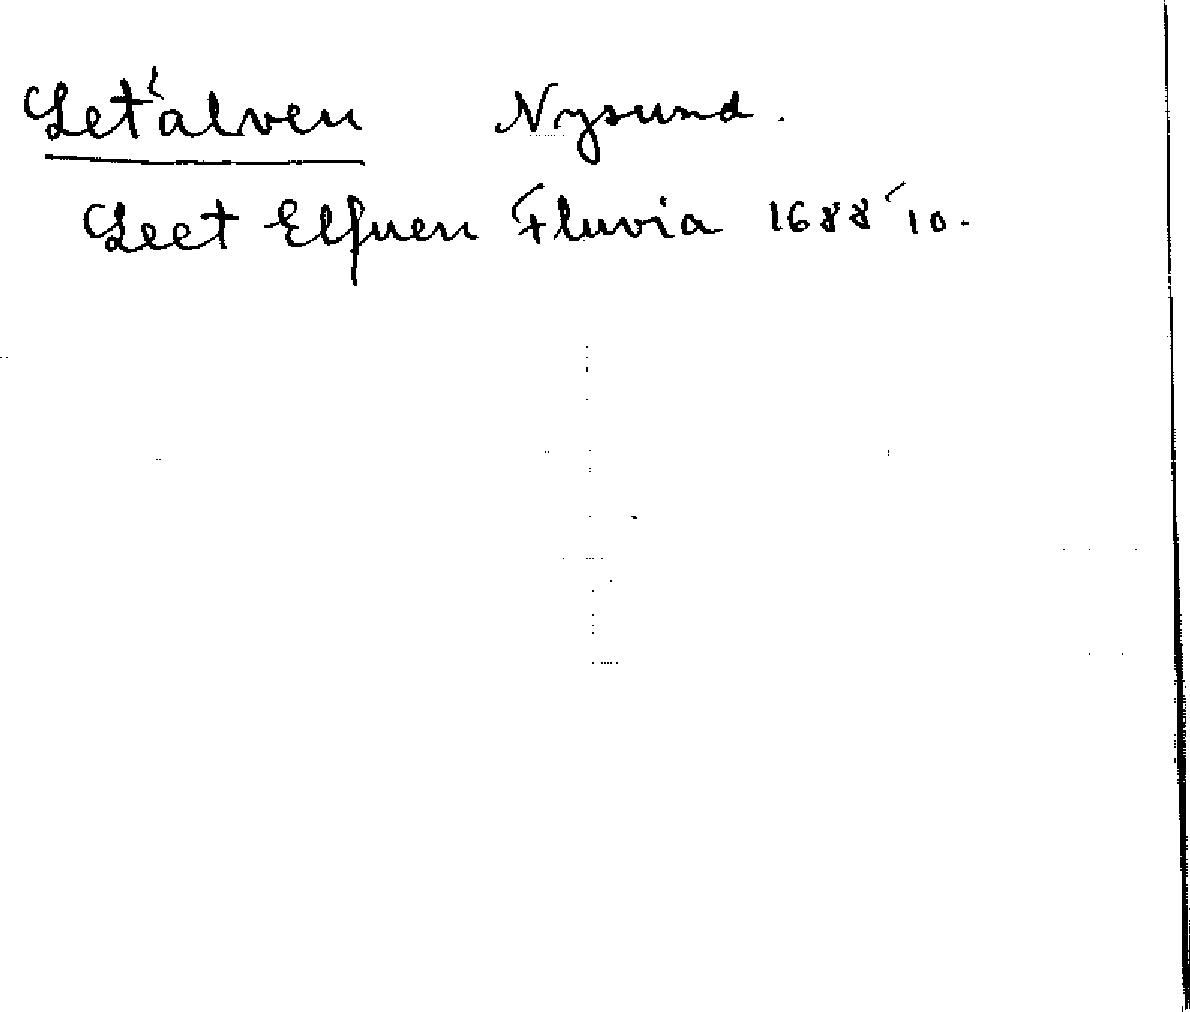 Letälven Nysund.
Leet Elfuen Fluvia 1688 10.